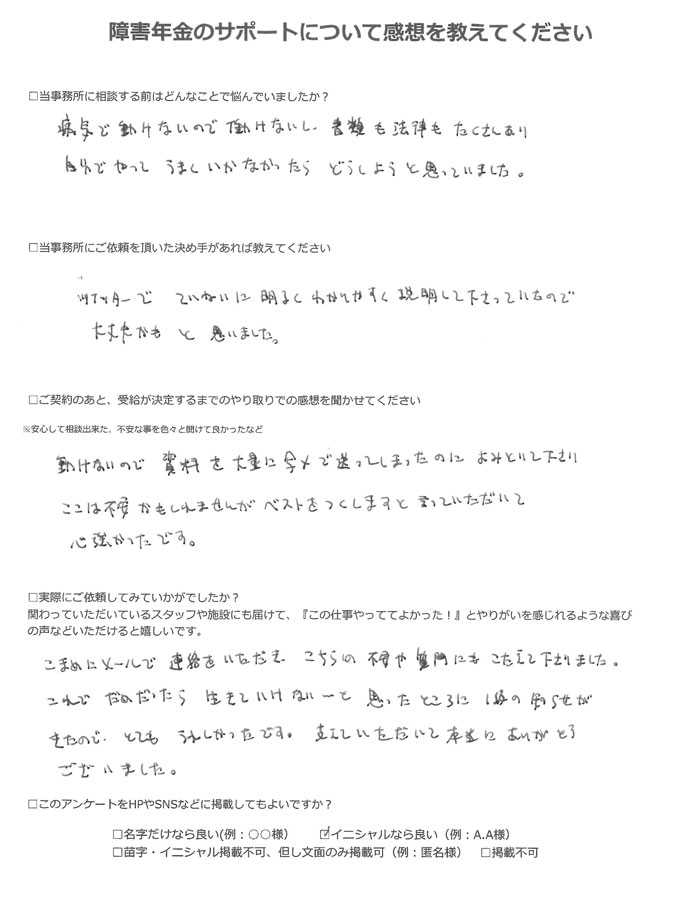 障害年金のサポートについて感想を教えてください
□当事務所に相談する前はどんなことで悩んでいましたか？
病気で動けないので働けないし、書類も法律もたくさんあり
自分でやって うまくいかなかったら どうしようと思っていました。
□当事務所にご依頼を頂いた決め手があれば教えてください
ツイッターで ていねいに明るくわかりやすく説明して下さっていたので
大丈夫かも と 思いました。
□ご契約のあと、受給が決定するまでのやり取りでの感想を聞かせてください
※安心して相談出来た、不安な事を色々と聞けて良かったなど
動けないので 資料を大量に 送ってしまったのに よみといて下さり
ここは不安かもしれませんが ベストをつくしますと 言っていただいて
心強かったです。
□実際にご依頼してみていかがでしたか？
関わっていただいているスタッフや施設にも届けて、『この仕事やっててよかった！』とやりがいを感じれるような喜び
の声などいただけると嬉しいです。
こまめにメールで 連絡をいただき こちらの 不安や質問にも こたえて下さりました。
これで だめだったら 生きていけない〜と 思ったところに の知らせが
きたので、とても うれしかったです。支えていただいて本当に ありがとう
ございました。
□このアンケートをHPやSNSなどに掲載してもよいですか？
□名字だけなら良い(例：○○様) ☑イニシャルなら良い（例：A.A様）
□苗字・イニシャル掲載不可、但し文面のみ掲載可（例：匿名様） □掲載不可